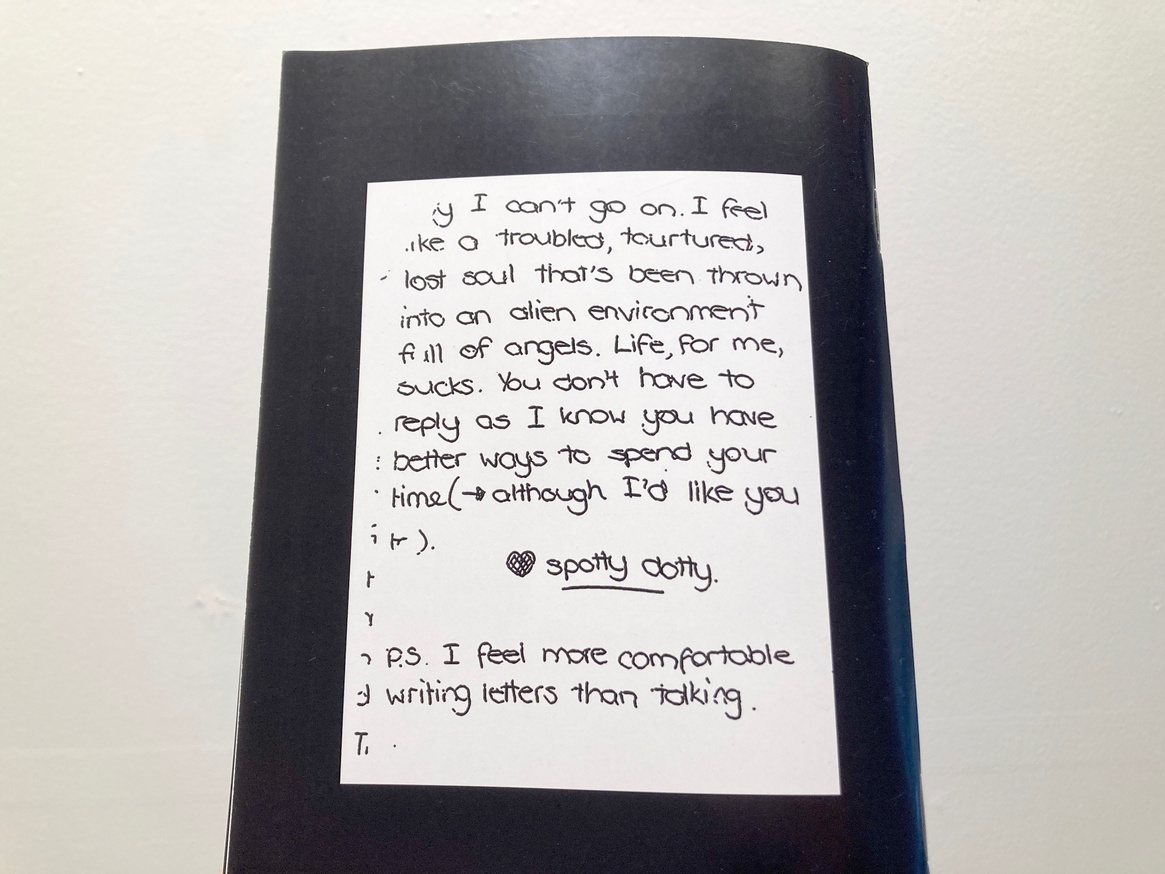 I can't go on. I feel
a troubled, tourtured,
lost soul that's been thrown
into an alien environment
full of angels. Life, for me,
sucks. You don't have to
reply as I know you have
better ways to spend your
time (→ although I'd like you
).
♥ spotty dotty.
P.S. I feel more comfortable
writing letters than talking.